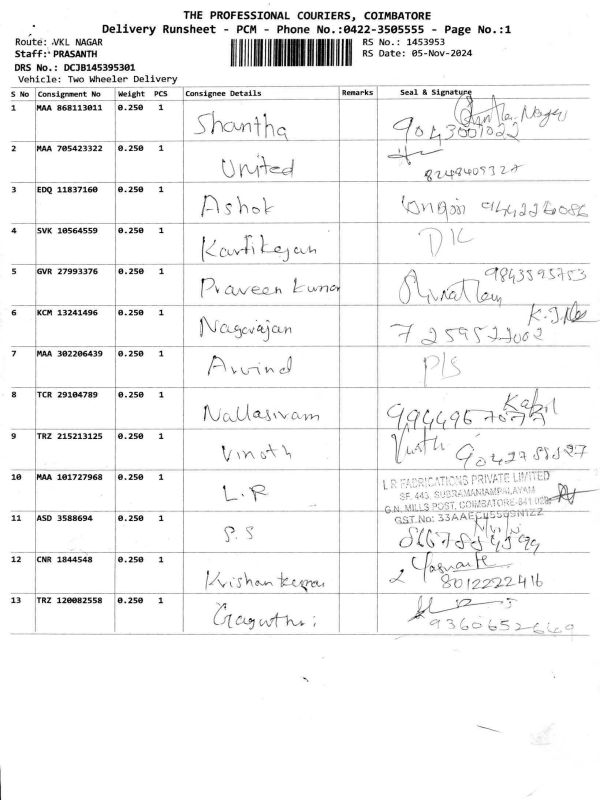 THE PROFESSIONAL COURIERS, COIMBATORE
Delivery Runsheet - PCM - Phone No.:0422-3505555 - Page No.:1
Route: VKL NAGAR RS No.: 1453953
Staff: PRASANTH RS Date: 05-Nov-2024
DRS No.: DCJB145395301
Vehicle: Two Wheeler Delivery
S No Consignment No Weight PCS Consignee Details Remarks Seal & Signature
1 MAA 868113011 0.250 1 Shantha
2 MAA 705423322 0.250 1 United
3 EDQ 11837160 0.250 1 Ashok
4 SVK 10564559 0.250 1 Kartikejan DK
5 GVR 27993376 0.250 1 Praveen kumar 9843595753
6 KCM 13241496 0.250 1 Nagarajan
7 MAA 302206439 0.250 1 Arvind P/S
8 TCR 29104789 0.250 1 Nallasivam
9 TRZ 215213125 0.250 1 Vinoth
10 MAA 101727968 0.250 1 L.R L R FABRICATIONS PRIVATE LIMITED
SF. 443, SUBRAMANIAMPALAYAM
G.N. MILLS POST, COIMBATORE-641 029
GST.No:
11 ASD 3588694 0.250 1 S.S
12 CNR 1844548 0.250 1 Krishankumar 8012222416
13 TRZ 120082558 0.250 1 9360652669